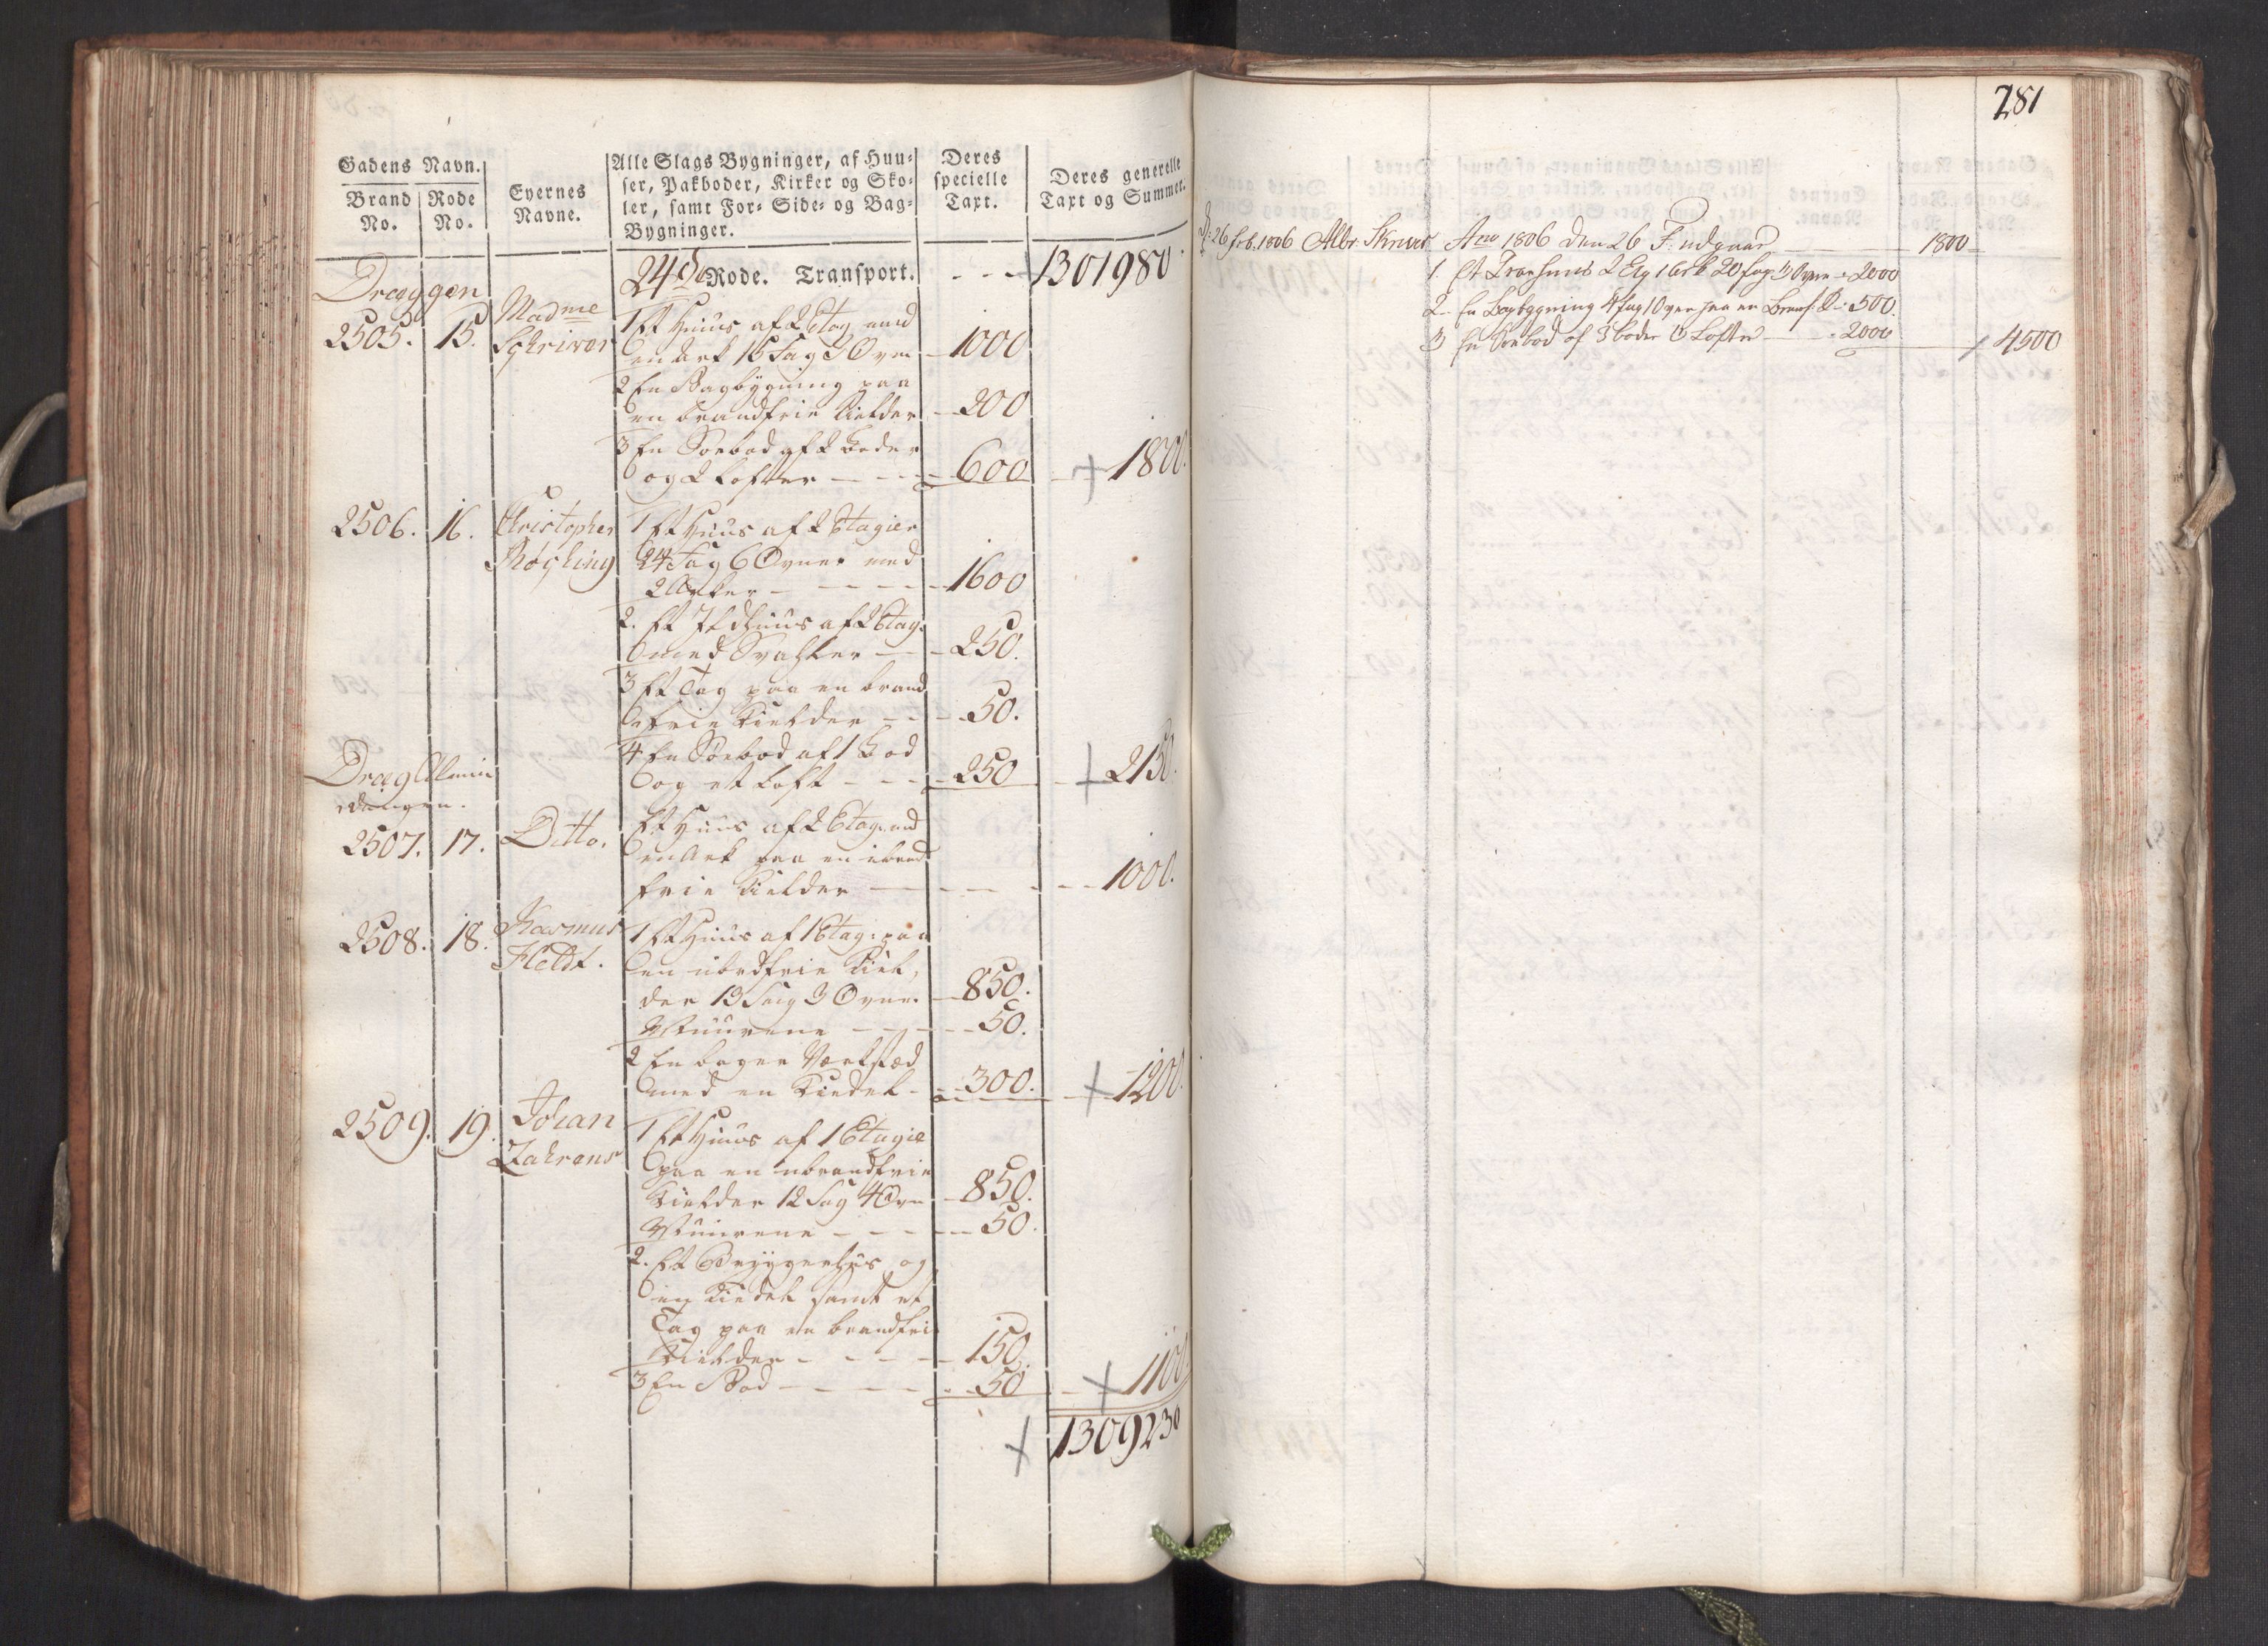 Gadens Navn.
Brand No.
Rode No.
Eyernes Navne.
Alle Slags Bygninger, af Huu-
ser, Pakboder, Kirker og Sko-
ler, samt For- Side- og Bag-
Bygninger.
Deres specielle Taxt.
Deres generelle Taxt og Summer.
24de Rode. Transport. - - - 1301980.
Dræggen
2505. 15. Madme Schriver
1 Et Huus af 2 Etag med
en Ark 15 Fag 3 Ovne - 1000
2 En Bagbygning paa
en brandfrie Kielder - 200
3 En Søebod af 2 Boder
og 2 Lofter - - - 600 + 1800.
2506. 16. Christopher
1 Et Huus af 2 Etagier
24 Fag 6 Ovner med
2 Arker - - - - 1600
2. Et Ildhuus af 2 Etag.
med Svalker - - 250.
3 Et Tag paa en brand
frie Kielder - - - 50.
4 En Søebod af 1 Bod
og et Loft - - - 250 + 2150.
Dræg Allmin
dingen.
2507. 17. Ditto.
Et Huus af 2 Etag. med
en Ark paa en ibrand
frie Kielder - - - 1000.
2508. 18. Rasmus Heldt.
1 Et Huus af 1 Etag: paa
en ubrdfrie Kiel,
der 13 Fag 3 Ovne. - 850.
Muurene - - - - 50.
2 En bager Værksted
med en Kiedel - - 300. + 1200.
2509. 19. Johan Zahrens
1 Et Huus af 1 Etagie
paa en ubrandfrie
Kielder 12 Fag 4 Ovn - 850.
Muurene - - - - 50.
2. Et Bryggerhus og
en Kiedel samt et
Tag paa en brandfri
Kielder - - - - 150.
3 En Bod - - - - 50 + 1100.
+ 1309230
281
26 Feb. 1806 Albr. Skriver Ano 1806 den 26 F. udgaar 1800
1. Et Vaanhuus 2 Etg 1 Ark 20 fag 3 Ovne - 2000
2. En Bagbygning 4 fag 1 Oven paa en Brandf. K - 500.
3 En Søebod af 3 boder 3 Lofter - 2000 + 4500